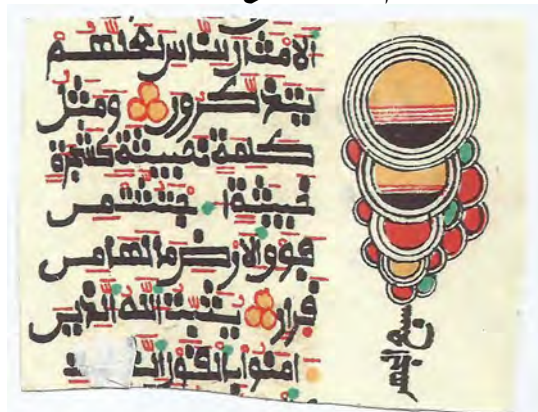 الامثال للناس لعلهم
يتذكرون ومثل
كلمة خبيثة كشجرة
خبيثة اجتثت من
فوق الارض ما لها من
قرار يثبت الله الذين
امنوا بالقول